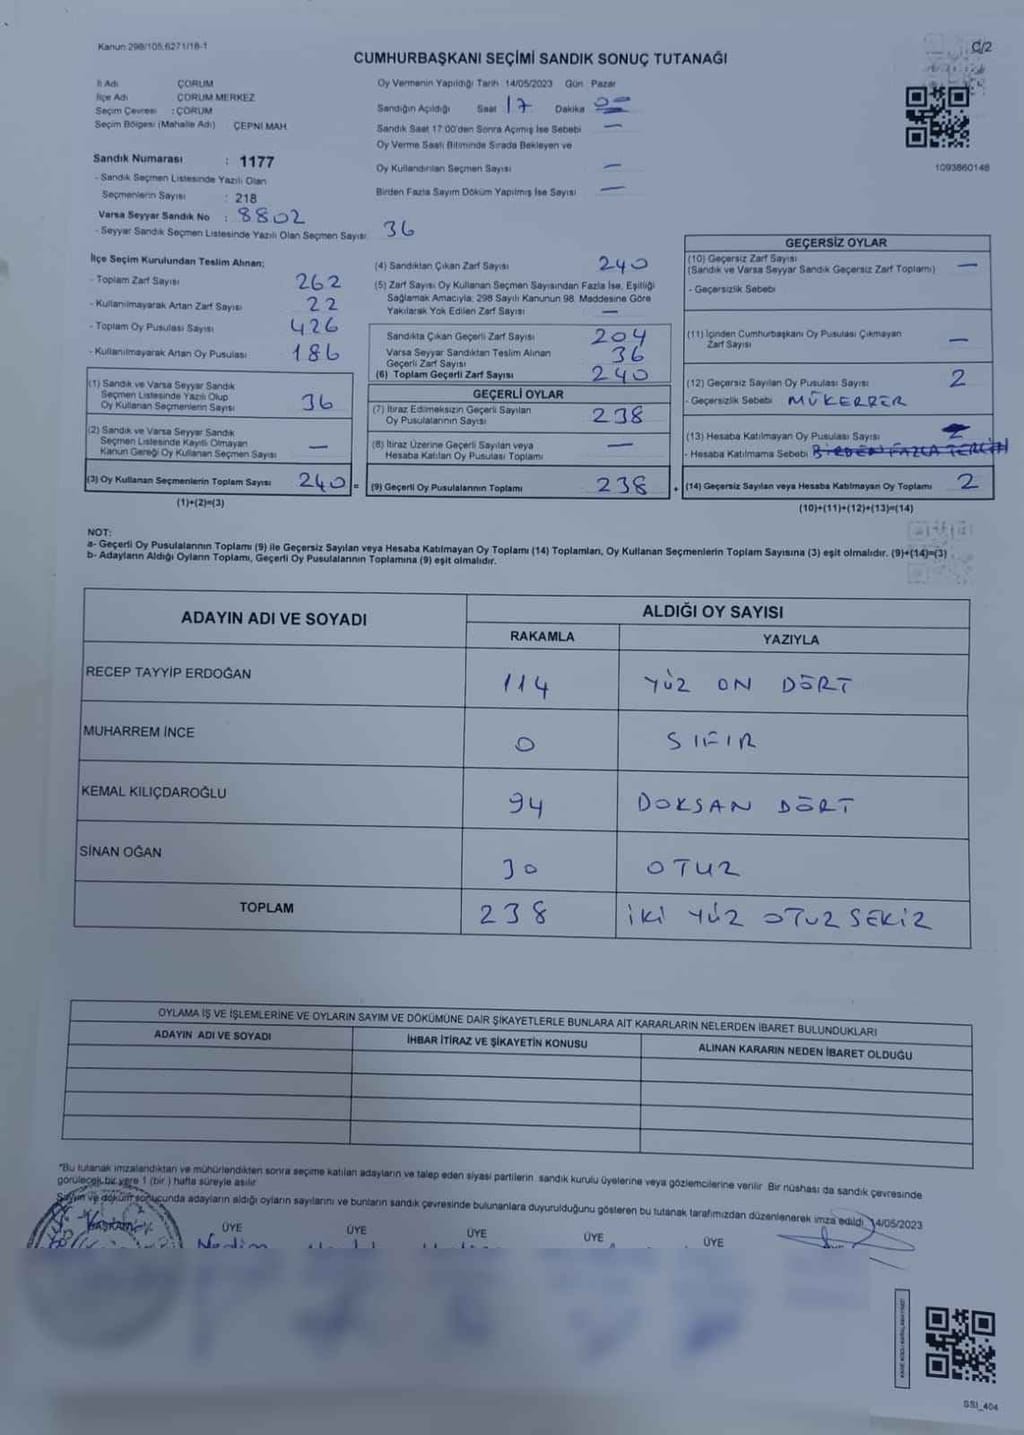 Kanun 298/105,6271/18-1
C/2
CUMHURBAŞKANI SEÇİMİ SANDIK SONUÇ TUTANAĞI
İl Adı ÇORUM
İlçe Adı ÇORUM MERKEZ
Seçim Çevresi : ÇORUM
Seçim Bölgesi (Mahalle Adı) ÇEPNİ MAH.
Sandık Numarası : 1177
- Sandık Seçmen Listesinde Yazılı Olan
Seçmenlerin Sayısı : 218
Varsa Seyyar Sandık No : 8802
- Seyyar Sandık Seçmen Listesinde Yazılı Olan Seçmen Sayısı 36
Oy Vermenin Yapıldığı Tarih 14/05/2023 Gün Pazar
Sandığın Açıldığı Saat 17 Dakika 00
Sandık Saat 17:00'den Sonra Açımış İse Sebebi —
Oy Verme Saati Bitiminde Sırada Bekleyen ve
Oy Kullandırılan Seçmen Sayısı —
Birden Fazla Sayım Döküm Yapılmış İse Sayısı —
1093860148
İlçe Seçim Kurulundan Teslim Alınan;
- Toplam Zarf Sayısı 262
- Kullanılmayarak Artan Zarf Sayısı 22
- Toplam Oy Pusulası Sayısı 426
- Kullanılmayarak Artan Oy Pusulası 186
(1) Sandık ve Varsa Seyyar Sandık
Seçmen Listesinde Yazılı Olup
Oy Kullanan Seçmenlerin Sayısı 36
(2) Sandık ve Varsa Seyyar Sandık
Seçmen Listesinde Kayıtlı Olmayan
Kanun Gereği Oy Kullanan Seçmen Sayısı —
(3) Oy Kullanan Seçmenlerin Toplam Sayısı 240 =
(1)+(2)=(3)
(4) Sandıktan Çıkan Zarf Sayısı 240
(5) Zarf Sayısı Oy Kullanan Seçmen Sayısından Fazla İse, Eşitliği
Sağlamak Amacıyla; 298 Sayılı Kanunun 98. Maddesine Göre
Yakılarak Yok Edilen Zarf Sayısı —
Sandıkta Çıkan Geçerli Zarf Sayısı 204
Varsa Seyyar Sandıktan Teslim Alınan
Geçerli Zarf Sayısı 36
(6) Toplam Geçerli Zarf Sayısı 240
GEÇERLİ OYLAR
(7) İtiraz Edilmeksizin Geçerli Sayılan
Oy Pusulalarının Sayısı 238
(8) İtiraz Üzerine Geçerli Sayılan veya
Hesaba Katılan Oy Pusulası Toplamı —
(9) Geçerli Oy Pusulalarının Toplamı 238 +
GEÇERSİZ OYLAR
(10) Geçersiz Zarf Sayısı
(Sandık ve Varsa Seyyar Sandık Geçersiz Zarf Toplamı) —
- Geçersizlik Sebebi
(11) İçinden Cumhurbaşkanı Oy Pusulası Çıkmayan
Zarf Sayısı —
(12) Geçersiz Sayılan Oy Pusulası Sayısı 2
- Geçersizlik Sebebi MÜKERRER
(13) Hesaba Katılmayan Oy Pusulası Sayısı
- Hesaba Katılmama Sebebi BİRDEN FAZLA TERCİH
(14) Geçersiz Sayılan veya Hesaba Katılmayan Oy Toplamı 2
(10)+(11)+(12)+(13)=(14)
NOT:
a- Geçerli Oy Pusulalarının Toplamı (9) ile Geçersiz Sayılan veya Hesaba Katılmayan Oy Toplamı (14) Toplamları, Oy Kullanan Seçmenlerin Toplam Sayısına (3) eşit olmalıdır. (9)+(14)=(3)
b- Adayların Aldığı Oyların Toplamı, Geçerli Oy Pusulalarının Toplamına (9) eşit olmalıdır.
ADAYIN ADI VE SOYADI ALDIĞI OY SAYISI
RAKAMLA YAZIYLA
RECEP TAYYİP ERDOĞAN 114 YÜZ ON DÖRT
MUHARREM İNCE 0 SIFIR
KEMAL KILIÇDAROĞLU 94 DOKSAN DÖRT
SİNAN OĞAN 30 OTUZ
TOPLAM 238 İKİ YÜZ OTUZ SEKİZ
OYLAMA İŞ VE İŞLEMLERİNE VE OYLARIN SAYIM VE DÖKÜMÜNE DAİR ŞİKAYETLERLE BUNLARA AİT KARARLARIN NELERDEN İBARET BULUNDUKLARI
ADAYIN ADI VE SOYADI İHBAR İTİRAZ VE ŞİKAYETİN KONUSU ALINAN KARARIN NEDEN İBARET OLDUĞU
*Bu tutanak imzalandıktan ve mühürlendikten sonra seçime katılan adayların ve talep eden siyasi partilerin sandık kurulu üyelerine veya gözlemcilerine verilir. Bir nüshası da sandık çevresinde
görülecek bir yere 1 (bir) hafta süreyle asılır.
Sayım ve döküm sonucunda adayların aldığı oyların sayılarını ve bunların sandık çevresinde bulunanlara duyurulduğunu gösteren bu tutanak tarafımızdan düzenlenerek imza edildi. 14/05/2023
BAŞKAN ÜYE ÜYE ÜYE ÜYE ÜYE
Nedim
SSI_404